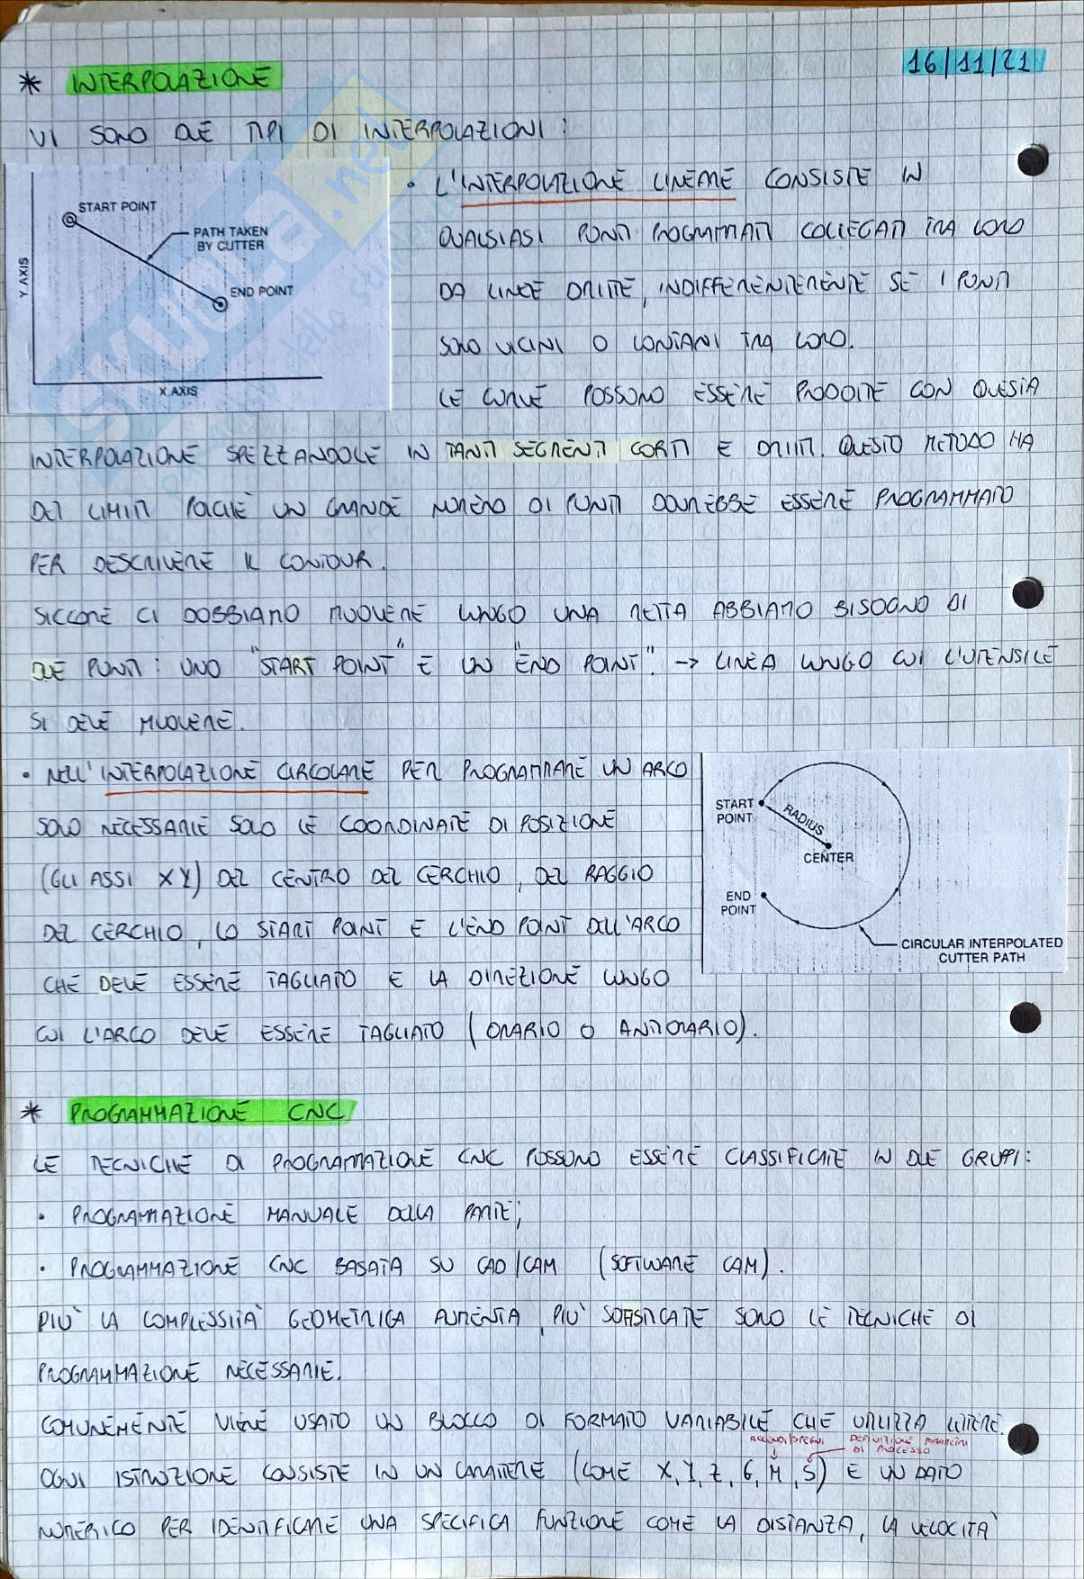 16/11/21
* INTERPOLAZIONE
VI SONO DUE TIPI DI INTERPOLAZIONI:
START POINT
PATH TAKEN
BY CUTTER
END POINT
Y AXIS
X AXIS
• L'INTERPOLAZIONE LINEARE CONSISTE IN
QUALSIASI PUNTI PROGRAMMATI COLLEGATI TRA LORO
DA LINEE DRITTE, INDIFFERENTEMENTE SE I PUNTI
SONO VICINI O LONTANI TRA LORO.
LE CURVE POSSONO ESSERE PRODOTTE CON QUESTA
INTERPOLAZIONE SPEZZANDOLE IN TANTI SEGMENTI CORTI E DRITTI. QUESTO METODO HA
DEI LIMITI POICHÈ UN GRANDE NUMERO DI PUNTI DOVREBBE ESSERE PROGRAMMATO
PER DESCRIVERE IL CONTOUR.
SICCOME CI DOBBIAMO MUOVERE LUNGO UNA RETTA ABBIAMO BISOGNO DI
DUE PUNTI: UNO "START POINT" E UN "END POINT". → LINEA LUNGO CUI L'UTENSILE
SI DEVE MUOVERE.
• NELL'INTERPOLAZIONE CIRCOLARE PER PROGRAMMARE UN ARCO
SONO NECESSARIE SOLO LE COORDINATE DI POSIZIONE
(GLI ASSI X Y) DEL CENTRO DEL CERCHIO, DEL RAGGIO
DEL CERCHIO, LO START POINT E L'END POINT DELL'ARCO
CHE DEVE ESSERE TAGLIATO E LA DIREZIONE LUNGO
CUI L'ARCO DEVE ESSERE TAGLIATO (ORARIO O ANTIORARIO).
START
POINT
RADIUS
CENTER
END
POINT
CIRCULAR INTERPOLATED
CUTTER PATH
* PROGRAMMAZIONE CNC
LE TECNICHE DI PROGRAMMAZIONE CNC POSSONO ESSERE CLASSIFICATE IN DUE GRUPPI:
• PROGRAMMAZIONE MANUALE DELLA PARTE;
• PROGRAMMAZIONE CNC BASATA SU CAD/CAM (SOFTWARE CAM).
PIÙ LA COMPLESSITÀ GEOMETRICA AUMENTA, PIÙ SOFISTICATE SONO LE TECNICHE DI
PROGRAMMAZIONE NECESSARIE.
COMUNEMENTE VIENE USATO UN BLOCCO DI FORMATO VARIABILE CHE UTILIZZA LETTERE.
DEFINIZIONE PARAMETRI
DI PROCESSO
OGNI ISTRUZIONE CONSISTE IN UN CARATTERE (COME X, Y, Z, G, M, S) E UN DATO
NUMERICO PER IDENTIFICARE UNA SPECIFICA FUNZIONE COME LA DISTANZA, LA VELOCITÀ
skuola.net